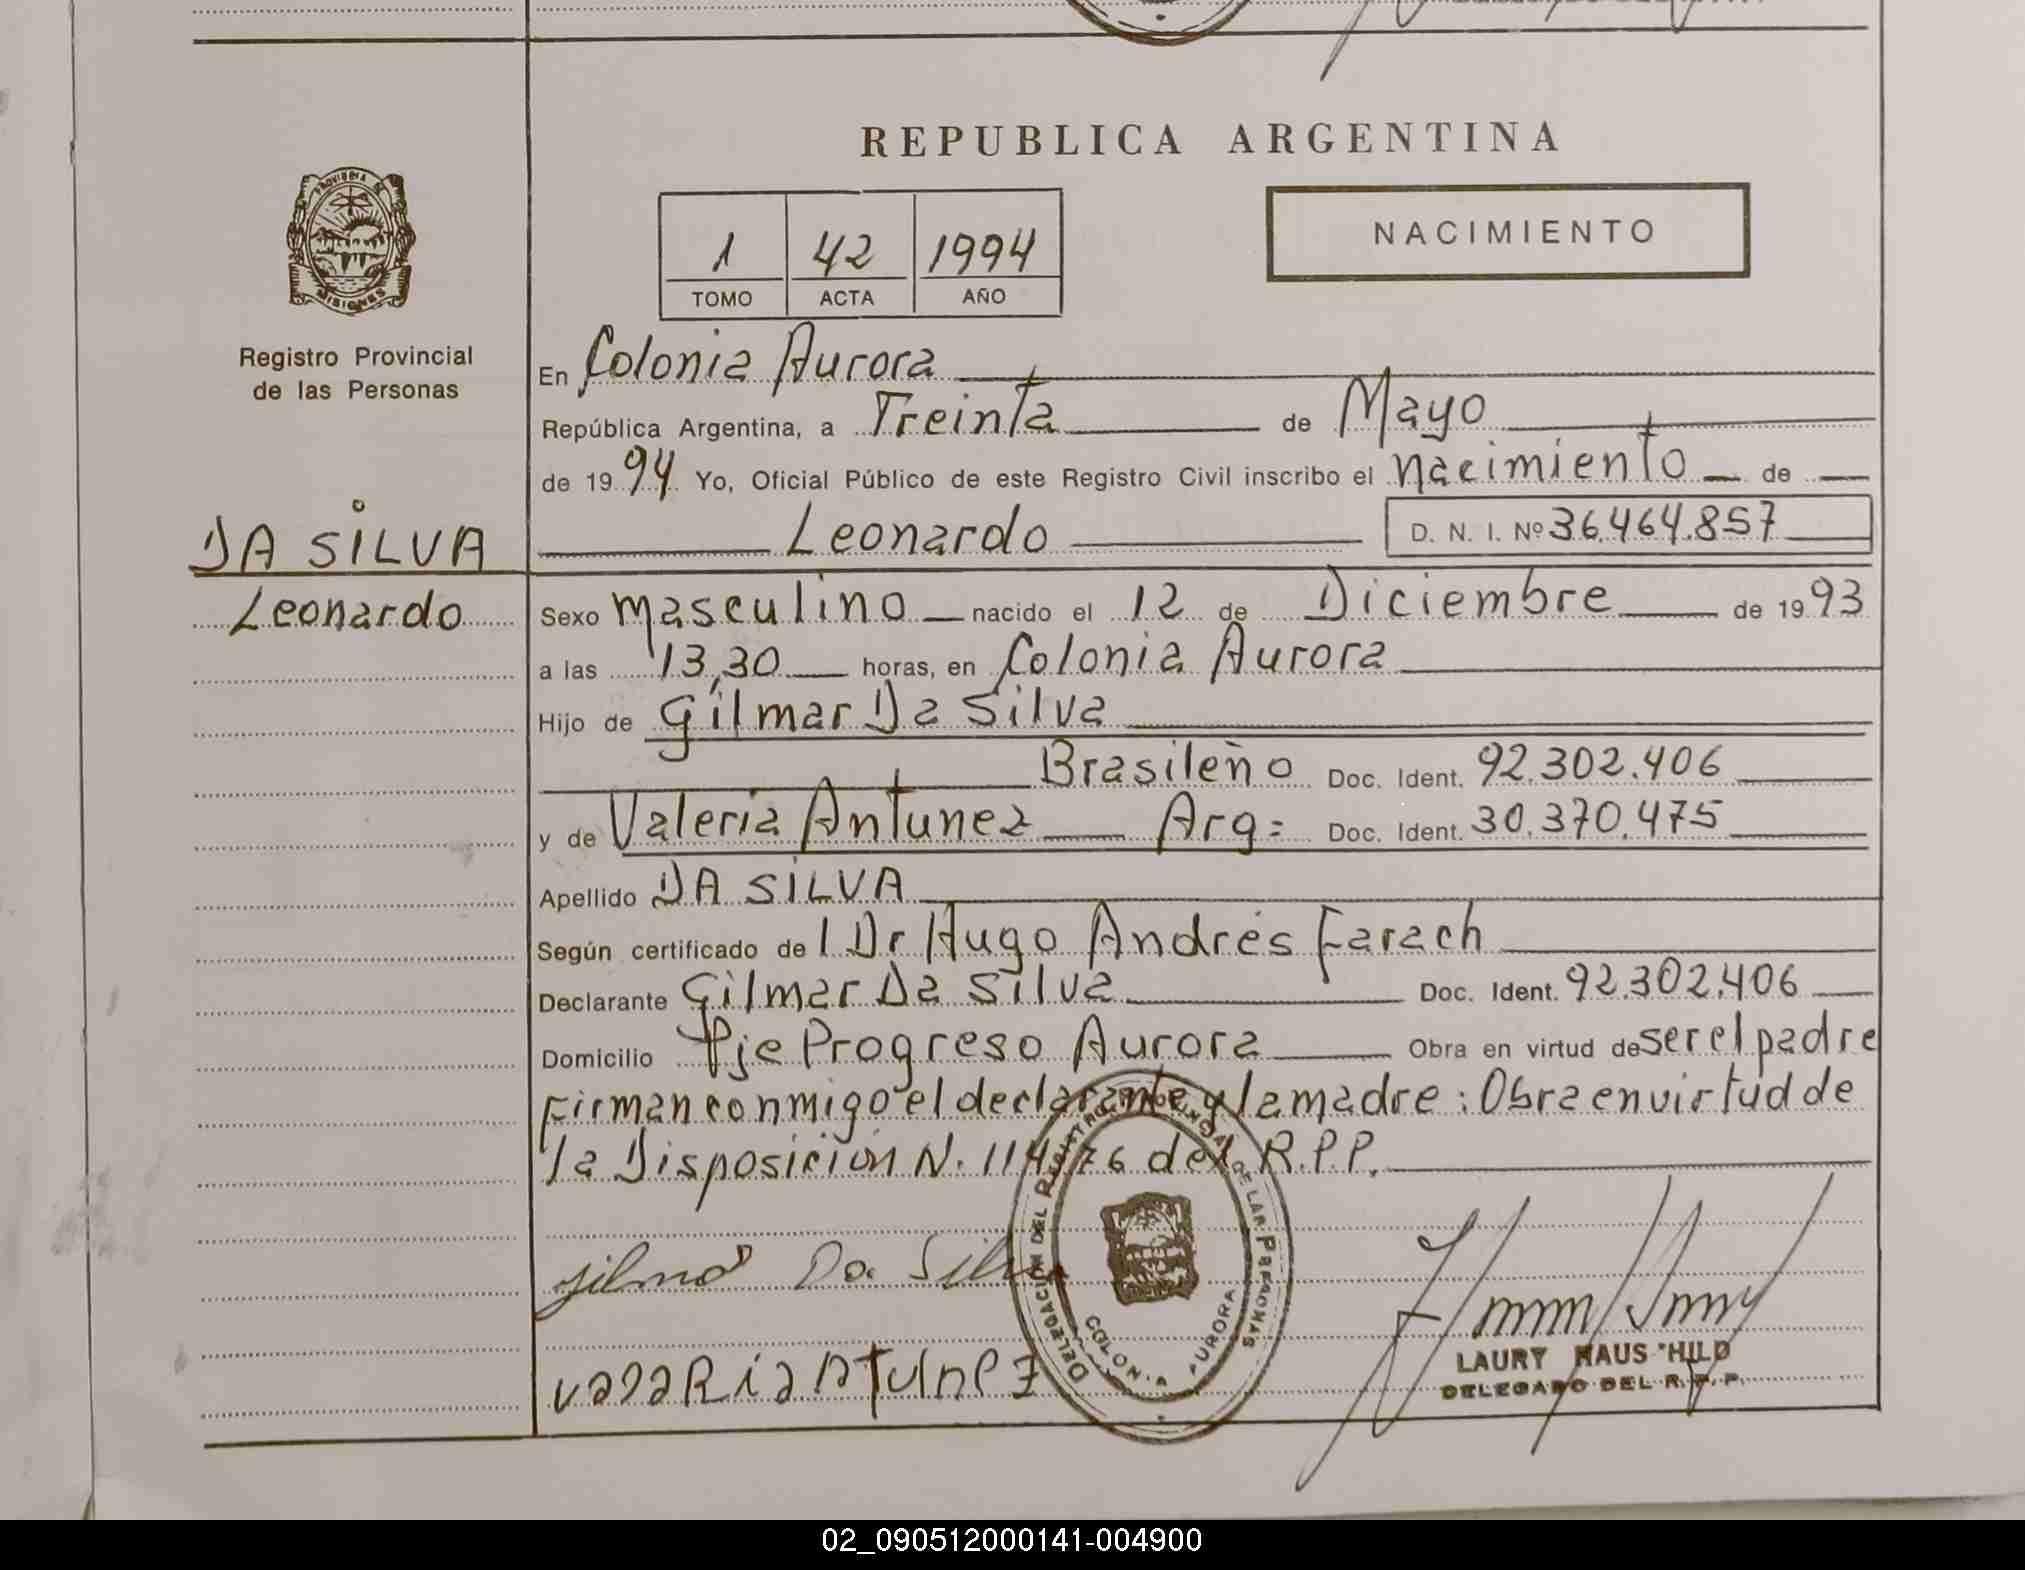 REPUBLICA ARGENTINA
PROVINCIA DE
MISIONES
Registro Provincial
de las Personas
1 42 1994
TOMO ACTA AÑO
NACIMIENTO
En Colonia Aurora
República Argentina, a Treinta de Mayo
de 1994 Yo, Oficial Público de este Registro Civil inscribo el nacimiento de
Leonardo D. N. I. Nº 36.464.857
DA SILVA
Leonardo
Sexo masculino nacido el 12 de Diciembre de 1993
a las 13,30 horas, en Colonia Aurora
Hijo de Gilmar Da Silva
Brasileño Doc. Ident. 92.302.406
y de Valeria Antunez Arg= Doc. Ident. 30.370.475
Apellido DA SILVA
Según certificado del Dr Hugo Andrés Farach
Declarante Gilmar Da Silva Doc. Ident. 92.302.406
Domicilio Pje Progreso Aurora Obra en virtud de ser el padre
Firman conmigo el declarante y la madre: Obra en virtud de
la Disposición N. 114/76 del R.P.P.
DELEGACION DEL REGISTRO PROVINCIAL DE LAS PERSONAS
COLONIA AURORA
Gilmar Da Silva
LAURY HAUS HILD
DELEGADO DEL R.P.P.
02_090512000141-004900